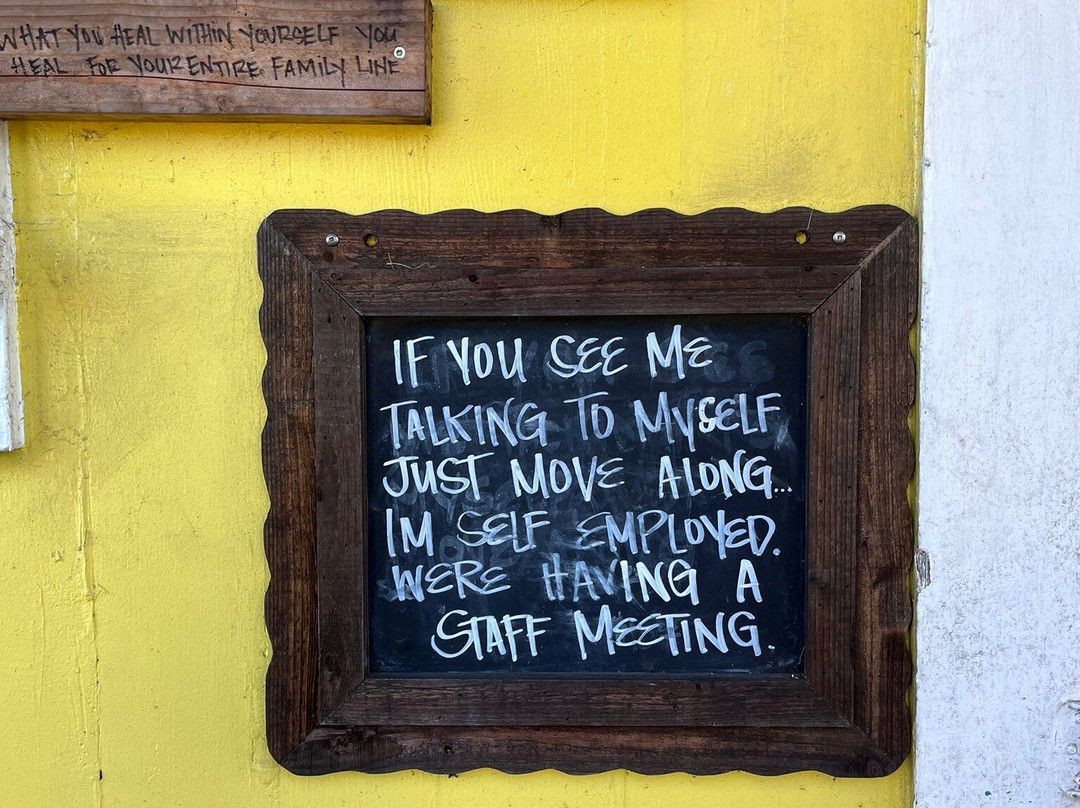 WHAT YOU HEAL WITHIN YOURSELF YOU
HEAL FOR YOUR ENTIRE FAMILY LINE
IF YOU SEE ME
TALKING TO MYSELF
JUST MOVE ALONG...
IM SELF EMPLOYED.
WERE HAVING A
STAFF MEETING.